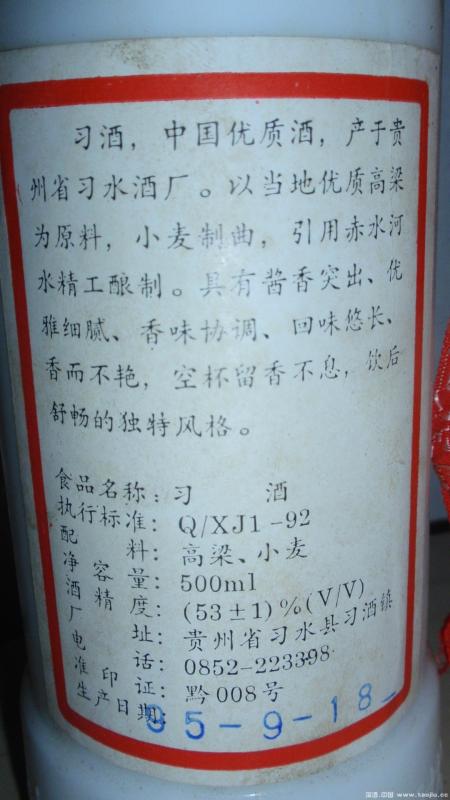 习酒，中国优质酒，产于贵
州省习水酒厂。以当地优质高梁
为原料，小麦制曲，引用赤水河
水精工酿制。具有酱香突出、优
雅细腻、香味协调、回味悠长、
香而不艳，空杯留香不息，饮后
舒畅的独特风格。
食品名称：习 酒
执行标准：Q/XJ1-92
配 料：高梁、小麦
净 容 量：500ml
酒 精 度：(53±1)%(V/V)
厂 址：贵州省习水县习酒镇
电 话：0852-223398
准 印 证：黔008号
生产日期：95-9-18
淘酒.中国 www.taojiu.cc